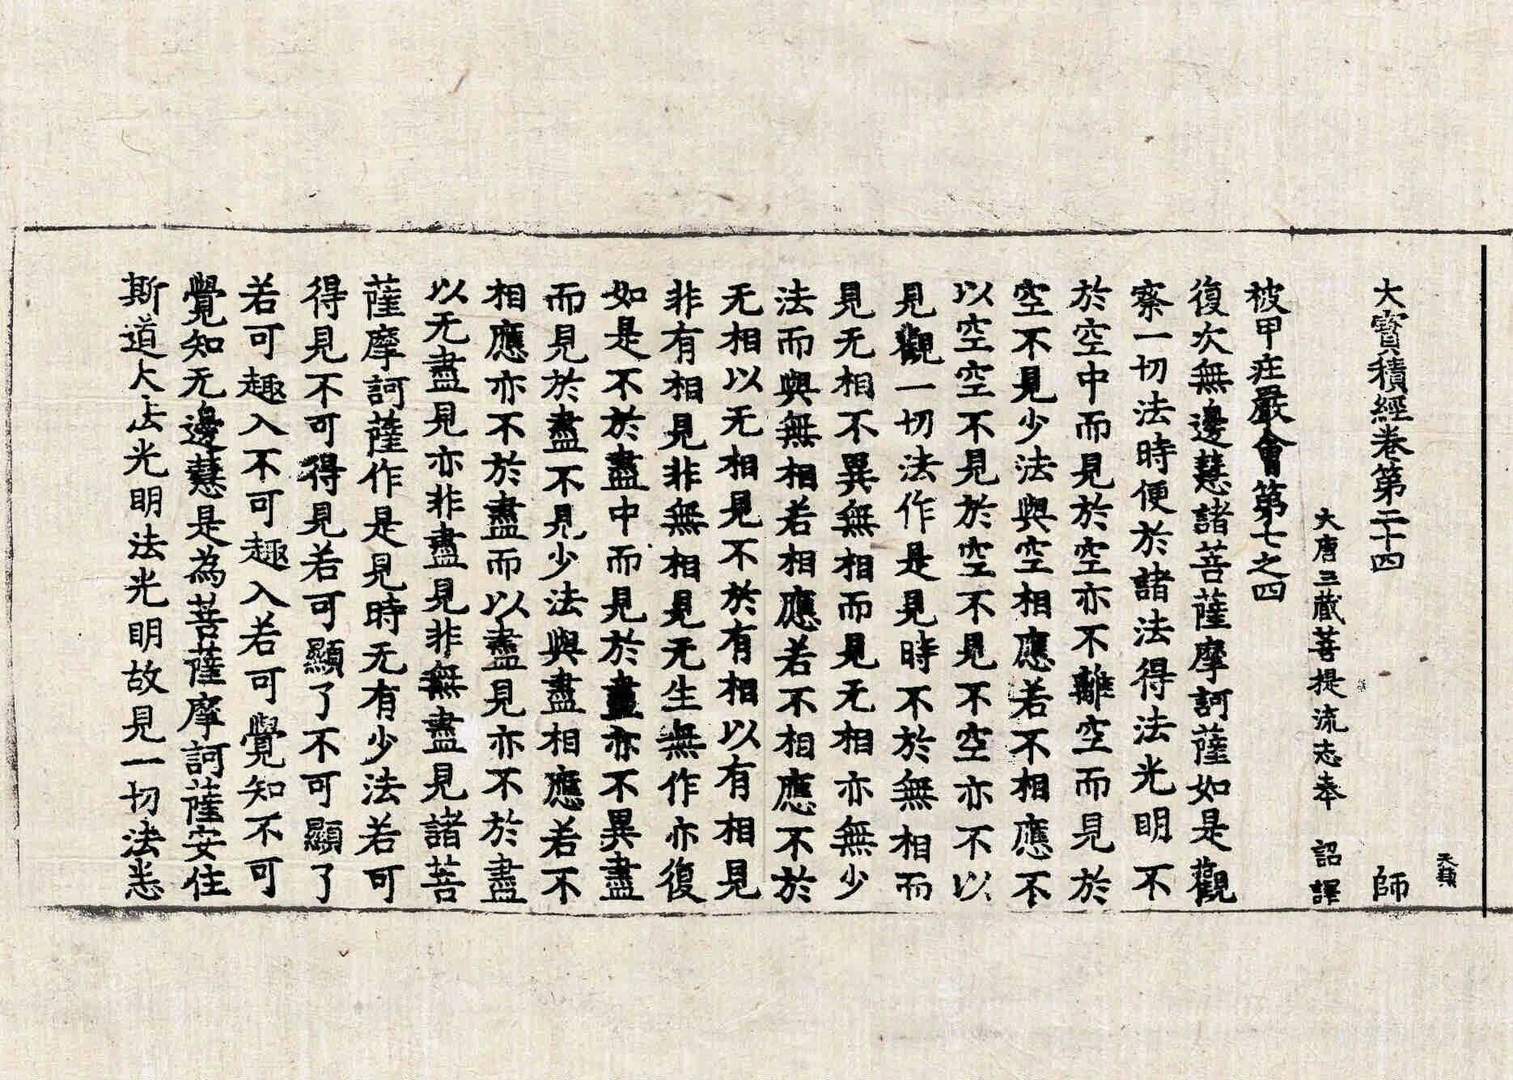 大寶積經卷第二十四 師
大唐三藏菩提流志奉 詔譯
被甲庄嚴會第七之四
復次無邊慧諸菩薩摩訶薩如是觀
察一切法時便於諸法得法光明不
於空中而見於空亦不離空而見於
空不見少法與空相應若不相應不
以空空不見於空不見不空亦不以
見觀一切法作是見時不於無相而
見无相不異無相而見无相亦無少
法而與無相若相應若不相應不於
无相以无相見不於有相以有相見
非有相見非無相見无生無作亦復
如是不於盡中而見於盡亦不異盡
而見於盡不見少法與盡相應若不
相應亦不於盡而以盡見亦不於盡
以无盡見亦非盡見非無盡見諸菩
薩摩訶薩作是見時无有少法若可
得見不可得見若可顯了不可顯了
若可趣入不可趣入若可覺知不可
覺知无邊慧是為菩薩摩訶薩安住
斯道大法光明法光明故見一切法悉